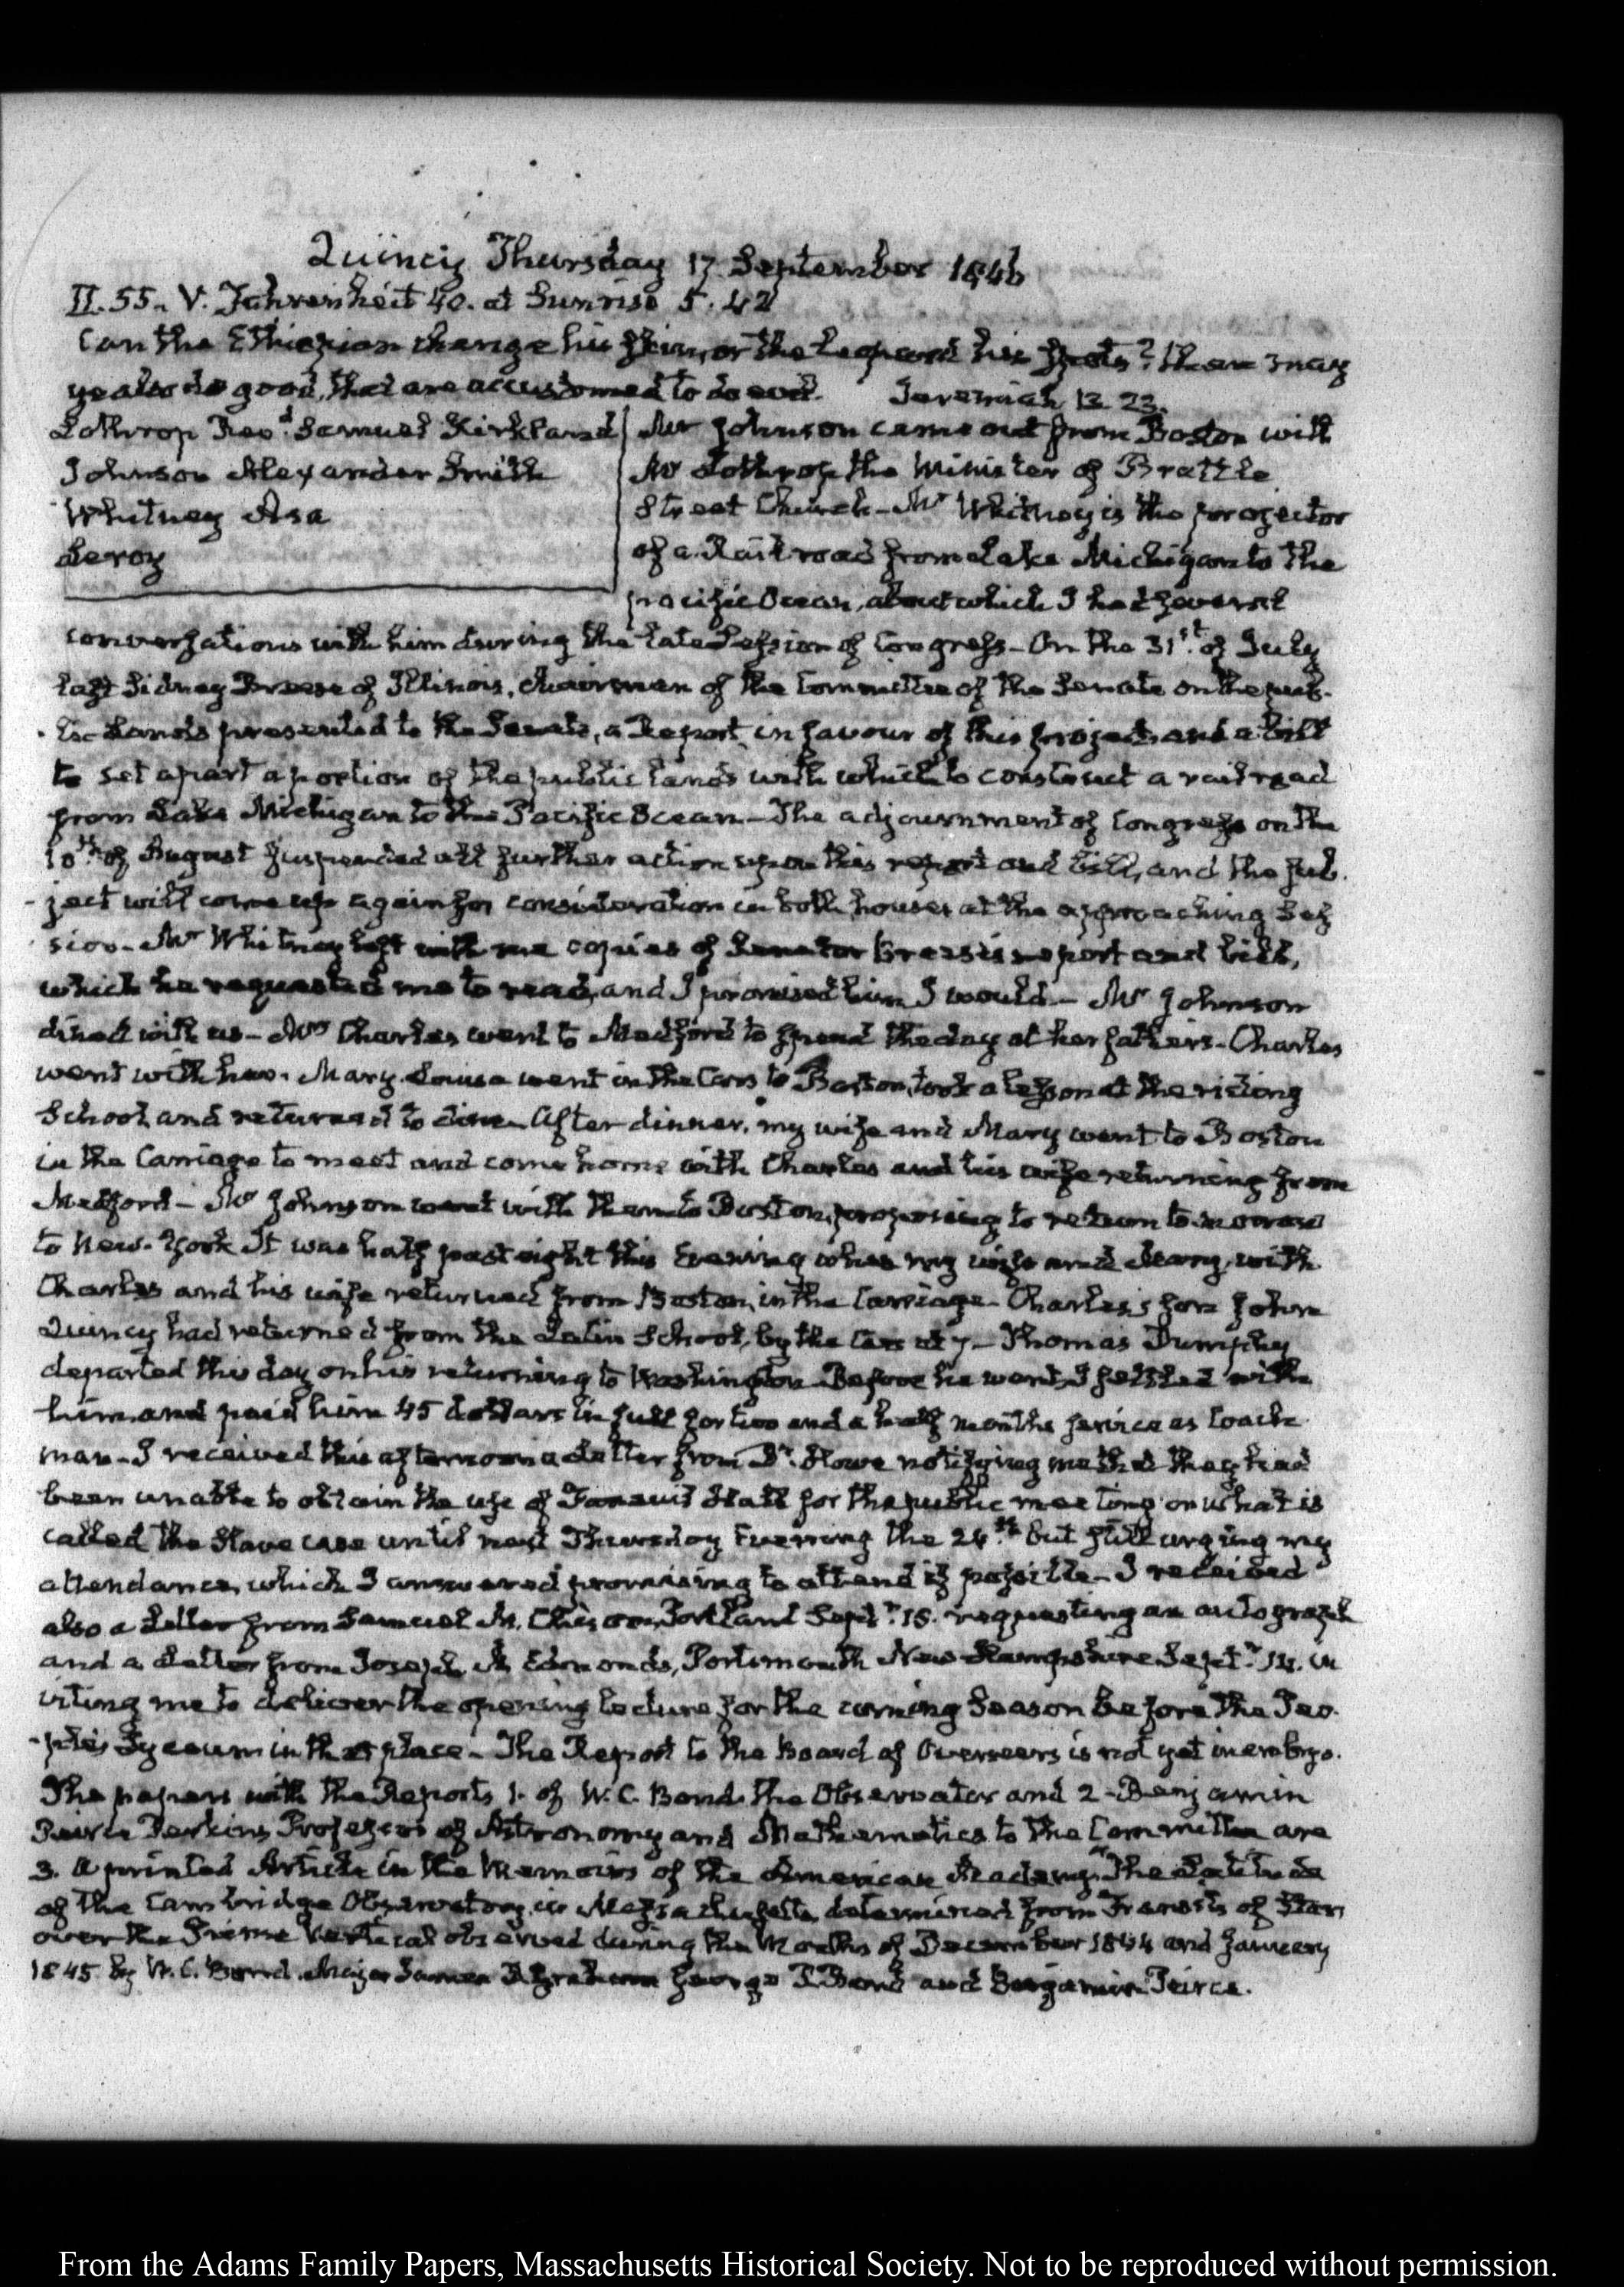 Quincy Thursday 17 September 1846
II. 55. V. Fahrenheit 40. at Sunrise 5. 42
Can the Ethiopian change his skin, or the leopard his spots? then may
ye also do good, that are accustomed to do evil. Jeremiah 13. 23.
Lothrop Revd. Samuel Kirkland
Johnson Alexander Smith
Whitney Asa
Leroy
Mr Johnson came out from Boston with
Mr Lothrop the Minister of Brattle
Street Church - Mr Whitney is the projector
of a Railroad from Lake Michigan to the
pacific Ocean, about which I had several
conversations with him during the late Session of Congress - On the 31st. of July
last Sidney Breese of Illinois, chairman of the Committee of the Senate on the pub-
-lic Lands presented to the Senate, a Report in favour of this project, and a bill
to set apart a portion of the public lands with which to construct a railroad
from Lake Michigan to the Pacific Ocean - The adjournment of Congress on the
10th. of August suspended all further action upon this report and bill, and the sub-
-ject will come up again for consideration in both houses at the approaching Ses
sion - Mr Whitney left with me copies of Senator Breese's report and bill,
which he requested me to read, and I promised him I would - Mr Johnson
dined with us - Mrs Charles went to Medford to spend the day at her father's - Charles
went with her. Mary Louisa went in the Cars to Boston, took a lesson at the riding
School, and returned to dine. After dinner, my wife and Mary went to Boston
in the Carriage to meet and come home with Charles and his wife returning from
Medford - Mr Johnson went with them to Boston, proposing to return tomorrow
to New-York It was half past eight this Evening when my wife and Mary, with
Charles and his wife returned from Boston, in the Carriage - Charles's son John
Quincy had returned from the Latin School, by the Cars at 7 - Thomas Dumphy
departed this day on his returning to Washington Before he went, I settled with
him, and paid him 45 dollars in full for two and a half months service as Coach
man - I received this afternoon a Letter from Dr. Howe notifying me that they had
been unable to obtain the use of Faneuil Hall for the public meeting on what is
called the Slave case until next Thursday Evening the 24th. but still urging my
attendance, which I answered promising to attend if possible - I received
also a Letter from Samuel M. Portland Septr. 15. requesting an autograph
and a Letter from Joseph M Edmonds, Portsmouth New Hampshire Septr. 14. in
viting me to deliver the opening lecture for the coming Season before the Peo-
-ple's Lyceum in that place - The Report to the Board of Overseers is not yet in embryo.
The papers with the Reports 1. of W. C. Bond the Observator and 2 - Benjamin
Peirce Perkins Professor of Astronomy and Mathematics to the Committee are
3. a printed Article in the Memoirs of the American Academy "The Latitude
of the Cambridge Observatory, in Massachusetts, determined from Transits of Stars
over the Prime Vertical observed during the Months of December 1844 and January
1845 by W. C. Bond. Major James D Graham George P. Bond and Benjamin Peirce.
From the Adams Family Papers, Massachusetts Historical Society. Not to be reproduced without permission.